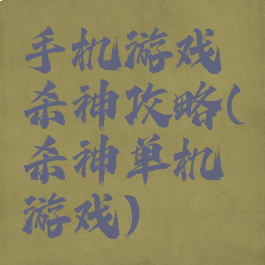 手机游戏
杀神攻略(
杀神单机
游戏)